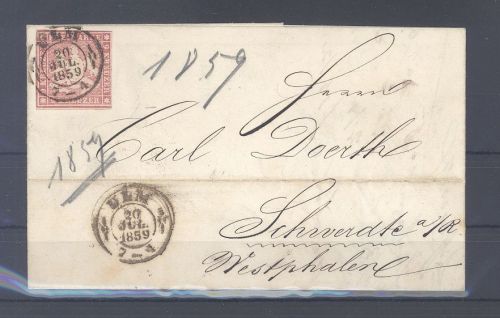 ULM
20
JUL.
1859
7-4
1859
Herrn
1859
Carl Doerth
ULM
20
JUL.
1859
7-4
Schwerdte a/R.
Westphalen